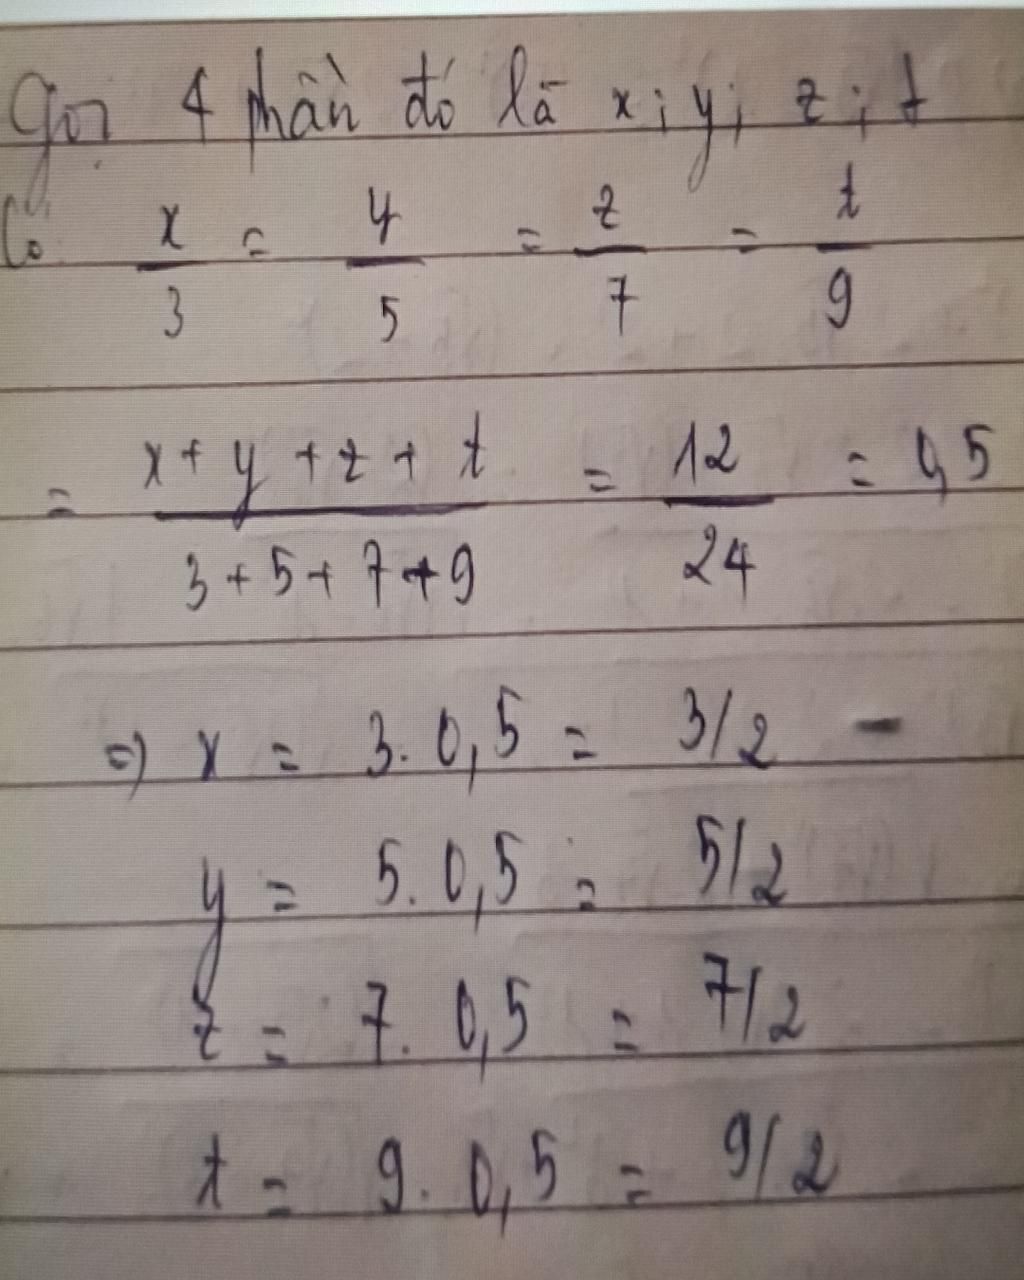 Gọi 4 phần đó là x; y; z; t
Có x/3 = y/5 = z/7 = t/9
= x + y + z + t / 3 + 5 + 7 + 9 = 12/24 = 0,5
=) x = 3. 0,5 = 3/2
y = 5. 0,5 = 5/2
z = 7. 0,5 = 7/2
t = 9. 0,5 = 9/2